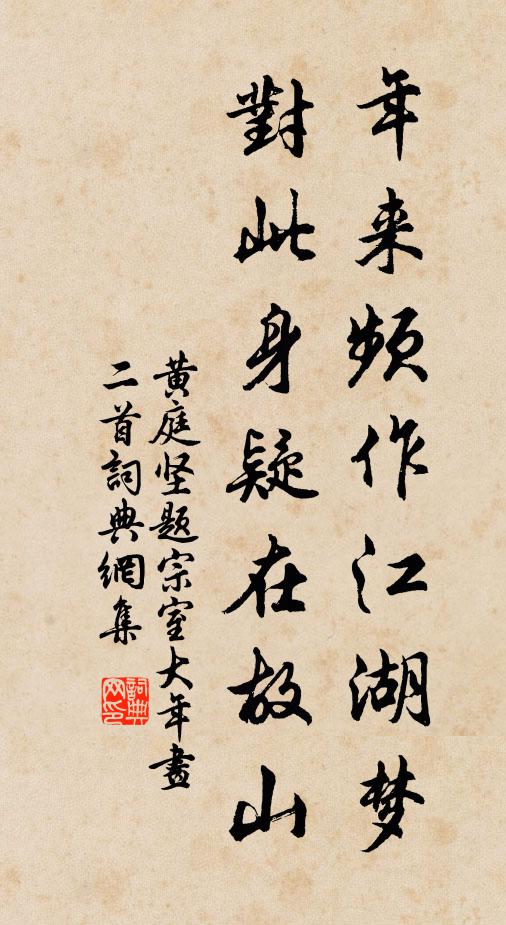 年来频作江湖梦
對此身疑在故山
黄庭坚题宗室大年畫
二首詞典網集
詞典网印